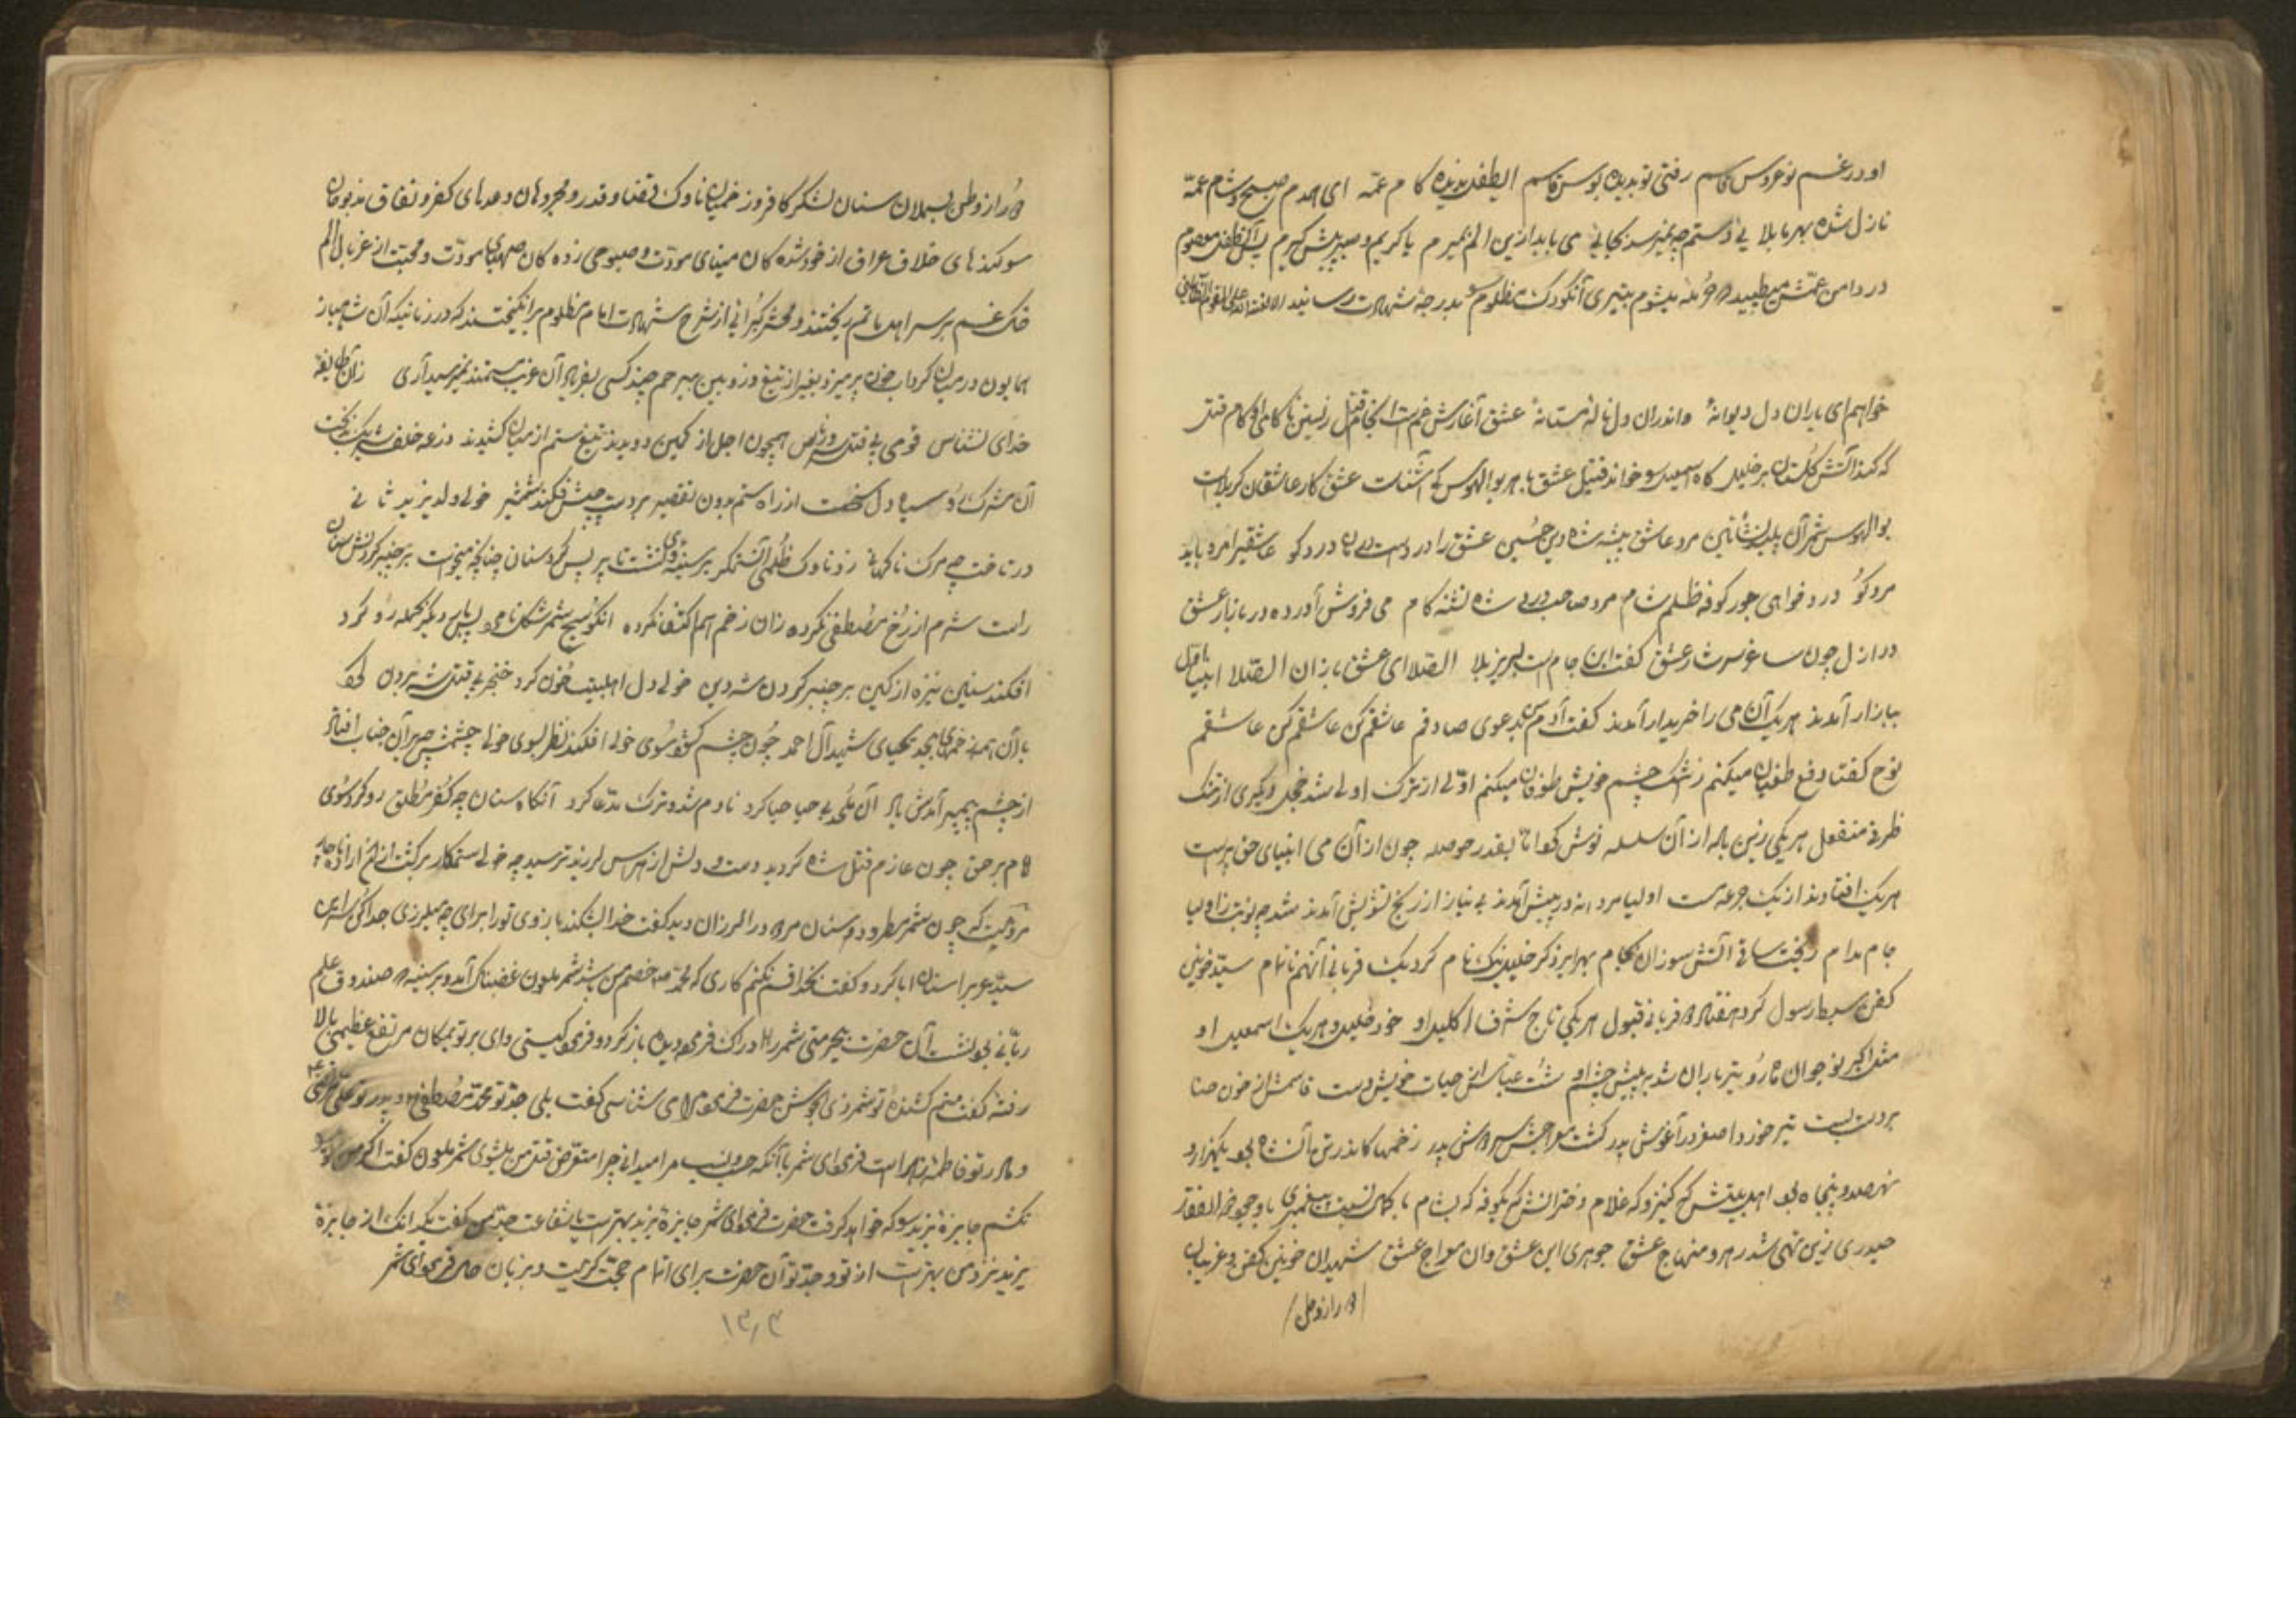 او در غم نوعروس قاسم رفتی تو بدیده بوس قاسم ای طفل ندیده کام عمّه ای همدم صبح و شام عمّه
نازل شده بهر ما بلا می باید ازین الم بمیرم یا کریم و صبر پیش گیرم پس آن طفل معصوم
در دامن عمّش میطپید حرمله میشوم بتیری آنکودک مظلوم بدرجهٔ شهادت رسانید الا لعنة الله علی القوم الظالمین
خواهم ای یاران دل دیوانهٔ واندران دل نالهٔ مستانهٔ عشق آغازش غم است انجام قتل
که کند آتش گلستان بر خلیل گاه اسمعیل خواند قتیل عشق با هر بوالهوس کی آشناست عشق کار عاشقان کربلاست
بوالهوس شمر آن مرد عاشق پیشه شاه دین حسین عشق را در دست درد کو عاشقی را مرد باید
مرد کو درد خواهی جور کوفه ظلم شام مرد صاحب درد شاه تشنه کام می فروش آورده در بازار عشق
در ازل چون ساغر سرشار عشق گفت این جام است لبریز بلا الصّلا ای عشق بازان الصّلا انبیا اول
ببازار آمدند هر یک آن می را خریدار آمدند گفت آدم بدعوی صادقم عاشقم من عاشقم من عاشقم
نوح گفتا دفع طغیان میکنم ز اشک چشم خویش طوفان میکنم اوّلی از ترک اولی شد خجل دیگری از تنگ
ظرفی منفعل هر یکی زین باده از آن سلسله نوش کرد اما بقدر حوصله چون از آن می انبیای حق پرست
هر یک افتادند از یک جرعه مست اولیا مردانه در پیش آمدند بی نیاز از رنج تشویش آمدند شد چه نوبت ز اولیا
جام مدام ریخت ساقی آتش سوزان بجام بهر ابرو ذکر خلیل نیک نام کرد یک قربانی آنهم ناتمام سیّد خونین
کفن سبط رسول کرد هفتاد و دو قربانی قبول هر یکی تاج شرف اکلیل او خود خلیل و هر یک اسمعیل او
مثل اکبر نوجوان ماه رو تیر باران شد به پیش چشم او شست عباس از حیات خویش دست قاسمش از خون حنا
بر دست بست تیر خورد اصغر در آغوش پدر گشت معراجش سر دوش پدر زخمها کاندر تن آن شاه بود یکهزار و
نهصد و پنجاه بود اهلبیتش کنیز و که غلام دخترانش که بکوفه که بشام با کمال نسبت پیغمبری با وجود ذوالفقار
حیدری زین نهی شد رهرو منهاج عشق جوهری این عشق و آن معراج عشق شهیدان خونین کفن و غریبان
دور از وطن
دور از وطن بسملان سنان لشکر کافر و زخمیان ناوک قضا و قدر و مجروحان و صدای کفر و نفاق مذبوحان
سوکندهای خلاف عراق از خود شده کان مینای مودّت و صبوحی زده کان صهبای مودّت و محبت از غربال الم
خاک غم بر سر اهل ماتم ریختند و محشر کبرائی از شرح شهادت امام مظلوم بر انگیختند که در زمانیکه آن شاهباز
همایون در میان گرداب خون پر میزد بغیر از تیغ و زوبین بیرحم چند کسی بفریاد آن غریب مستمند نمیرسید آری زان طایفه
خدای نشناس قومی پی قتل همچون اجل از کمین دویدند تیغ ستم از میان کشیدند زرعه خلف شریک بدبخت
آن مشرک رو سیاه دل سخت از راه ستم بدون تقصیر بر دست چپش فکند شمشیر خولی ولد یزید ثانی
در تاخت چه مرگ ناگهانی زد ناوک ظلم آن ستمگر بر سینه او نشست تا پر پس کرد سنان چنانچه میخواست بر چنبر گردنش سنان
راست شرم از رخ مصطفی نکرده زان زخم هم اکتفا نکرده انکو سیح شمر شکل نامرد بار دیگر بحمله رو کرد
افکند سنین نیزه از کین بر چنبر گردن شه دین خولی دل اهلبیت خون کرد خنجر پی قتل شه برون کرد
با آن همه زخمهای بیحد یحیای شهید آل احمد چون چشم گشود سوی خولی افکند نظر بسوی خولی چشمش چه بر آن جناب افتاد
از چشم پیمبر آمدش یاد آن ملحد بی حیا حیا کرد نادم شد و ترک مدّعا کرد آنگاه سنان چه کفر مطلق رو کرد سوی
امام بر حق چون عازم قتل شاه گردید دست و دلش از هراس لرزید ترسید چه خولی ستمکار برگشت از آن اراده
مرویست که چون شمر مطرود دستان مرد در الرزان دید گفت خدا بشکند بازوی تو را برای چه میلرزی جدا کن سر این
سیّد عرب را سنان ابا کرد و گفت بخدا قسم نکنم کاری که محمد خصم من باشد شمر ملعون غضبناک آمد و بر سینه صندوق علم
ربّانی بنشست آن حضرت بیحرمتی شمر را ادراک فرموده دیده باز کرد و فرمود کیستی وای بر تو بمکان مرتفع عظیمی بالا
رفتهٔ گفت منم کشندهٔ تو شمر ذی الجوشن حضرت فرمود مرا می شناسی گفت بلی جدّ تو محمّد مصطفی و پدر تو علیّ مرتضی
و مادر تو فاطمه زهراست فرمود ای شمر با آنکه حسب و نسب مرا میدانی چرا متعرّض قتل من میشوی شمر ملعون گفت اگر من تو را
نکشم جایزهٔ یزید را که خواهد گرفت حضرت فرمود ای شمر جایزهٔ یزید بهتر است یا شفاعت جدّ من گفت یک دانک از جایزهٔ
یزید نزد من بهتر است از تو و جدّ تو آن حضرت برای اتمام حجّت گریست و بزبان حال فرمود ای شمر
۱۳۰۴